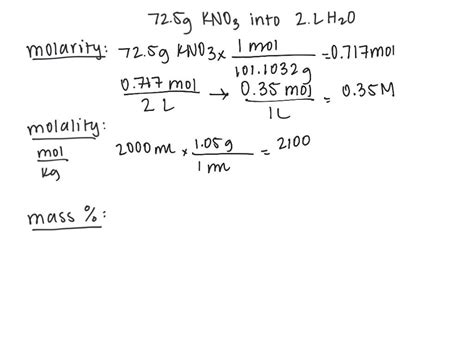 72.5g KNO3 into 2.L H2O
molarity: 72.5g KNO3 x 1 mol / 101.1032g = 0.717mol
0.717 mol / 2 L → 0.35 mol / 1L = 0.35M
molality:
mol / kg 2000 mL x 1.05g / 1 mL = 2100
mass %: